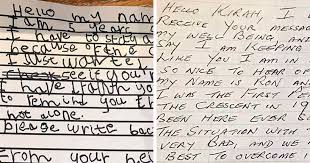 Hello my nam
I am 5 years
I have to stay a
because of the
I just wante
see if you'r
I have
to remind you t
not alone.
please write back
From your ne
HELLO KIRAH, I
RECEIVE YOUR MESSAGE
MY WELL BEING, AND
SAY I AM KEEPING
LIKE YOU I AM IN
SO NICE TO HEAR OF
MY NAME IS RON AND
I WAS THE FIRST PE
THE CRESCENT IN 19
BEEN HERE EVER S
THE SITUATION WITH
VERY BAD, AND WE
BEST TO OVERCOME I